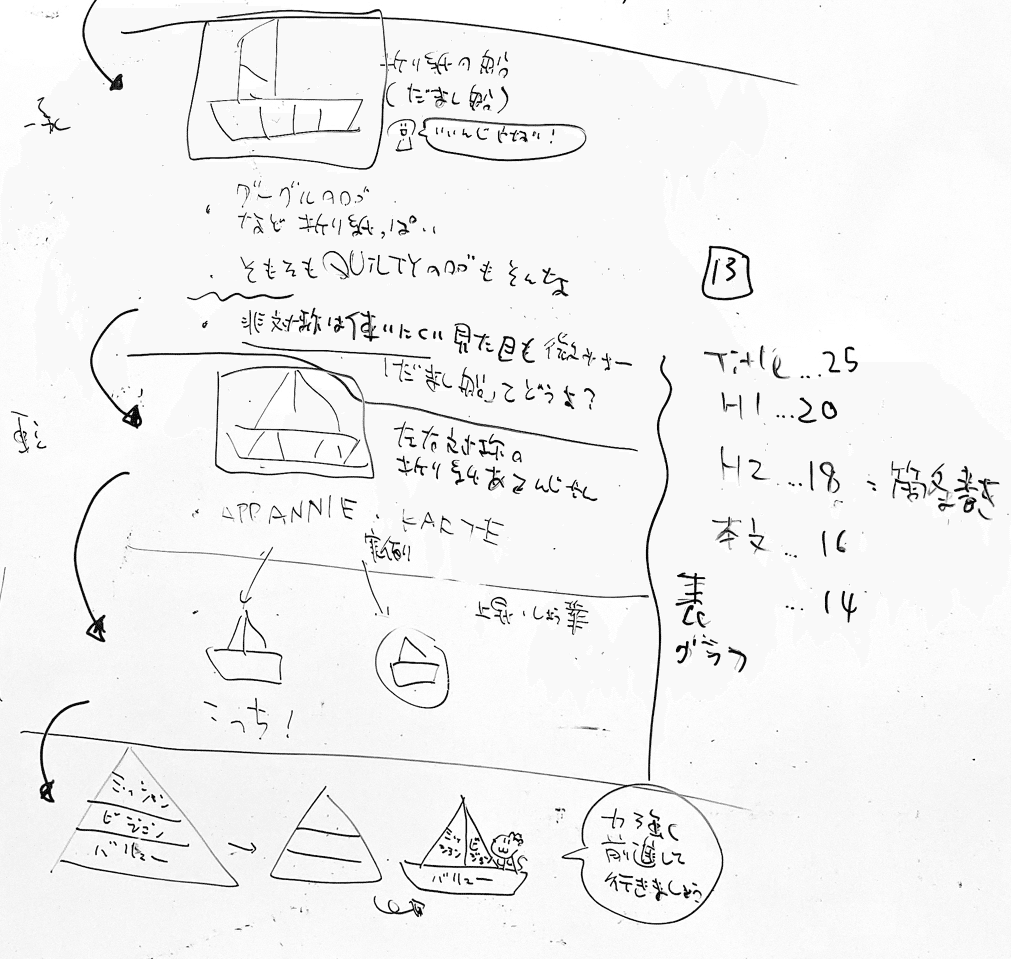 折り紙の船
(だまし船)
いいんじゃない!
グーグルのロゴ
など 折り紙っぽい
そもそもQUILTYのロゴもそんな
非対称は使いにくい 見た目も
「だまし船」てどうよ?
左右対称の
折り紙あるんじゃん
APPANNIE・KARTE
こっち!
ミッション
ビジョン
バリュー
ミッション
ビジョン
バリュー
力強く
前進して
行きましょう
13
Title...25
H1...20
H2...18 = 箇条書き
本文...16
表 ...14
グラフ